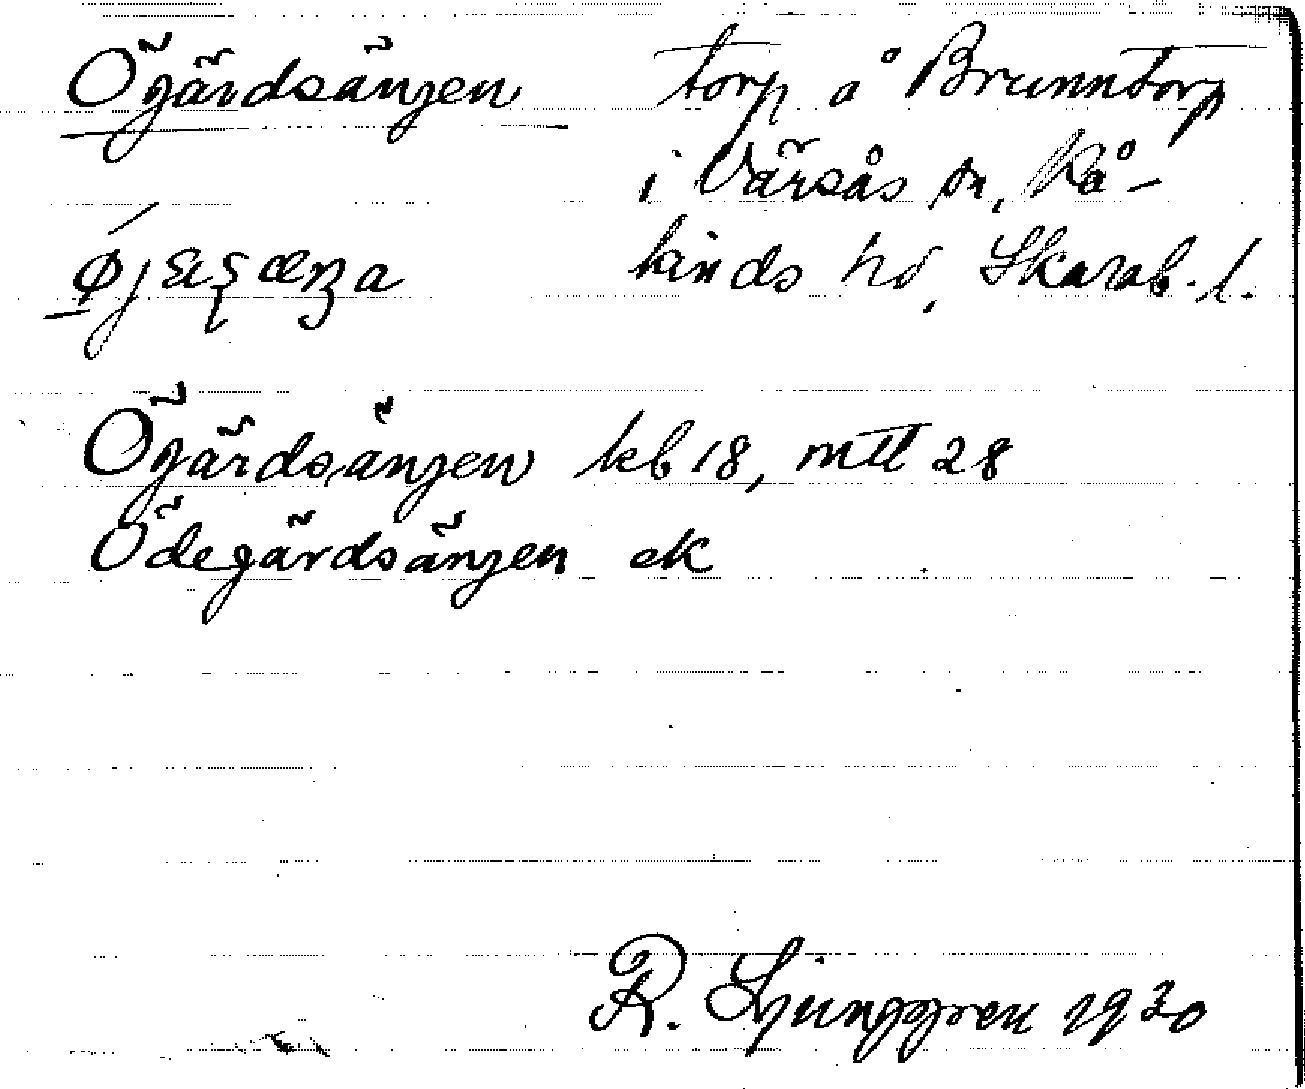 Ögärdsängen torp å Brunntorp
i Värsås sn, Kå-
kinds hd, Skarab. l.
Ögärdsängen kb 18, mtl 28
Ödegärdsängen ek
R. Ljunggren 1930